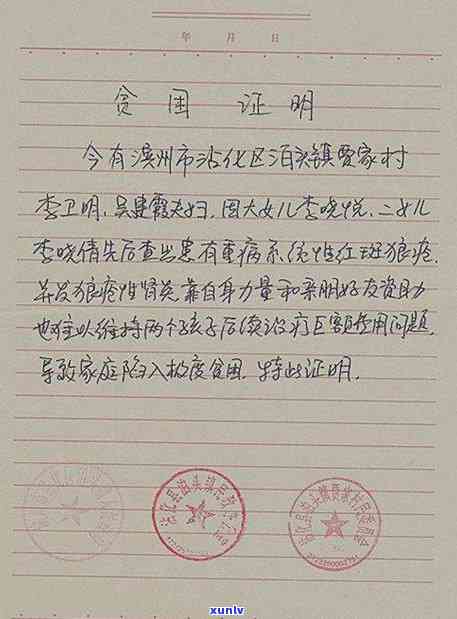 年 月 日
贫困证明
今有滨州市沾化区泊头镇贾家村
李卫明、吴建霞夫妇,因大女儿李晓悦、二女儿
李晓倩先后查出患有重病系统性红斑狼疮,
并发狼疮性肾炎,靠自身力量和亲朋好友资助
也难以维持两个孩子后续治疗医药费用问题,
导致家庭陷入极度贫困,特此证明.
沾化县泊头镇
沾化县泊头镇贾家村民委员会
xunlv